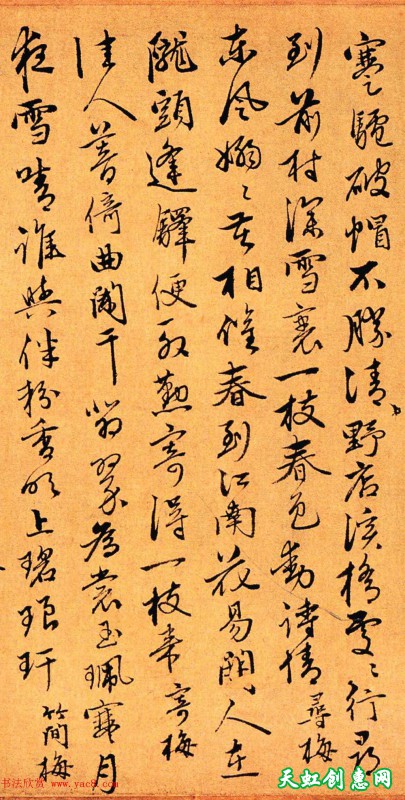 寒驢破帽不勝清野店溪橋處々行尋
到前村深雪裏一枝春色動詩情 尋梅
東風嫋々苦相催春到江南花易開人在
隴頭逢驛使殷勤寄得一枝來 寄梅
佳人暮倚曲闌干翡翠為裳玉珮寒月
雪晴誰與伴粉香吹上碧琅玕 簡梅
书法欣赏 www.yac8.com
天虹创惠网